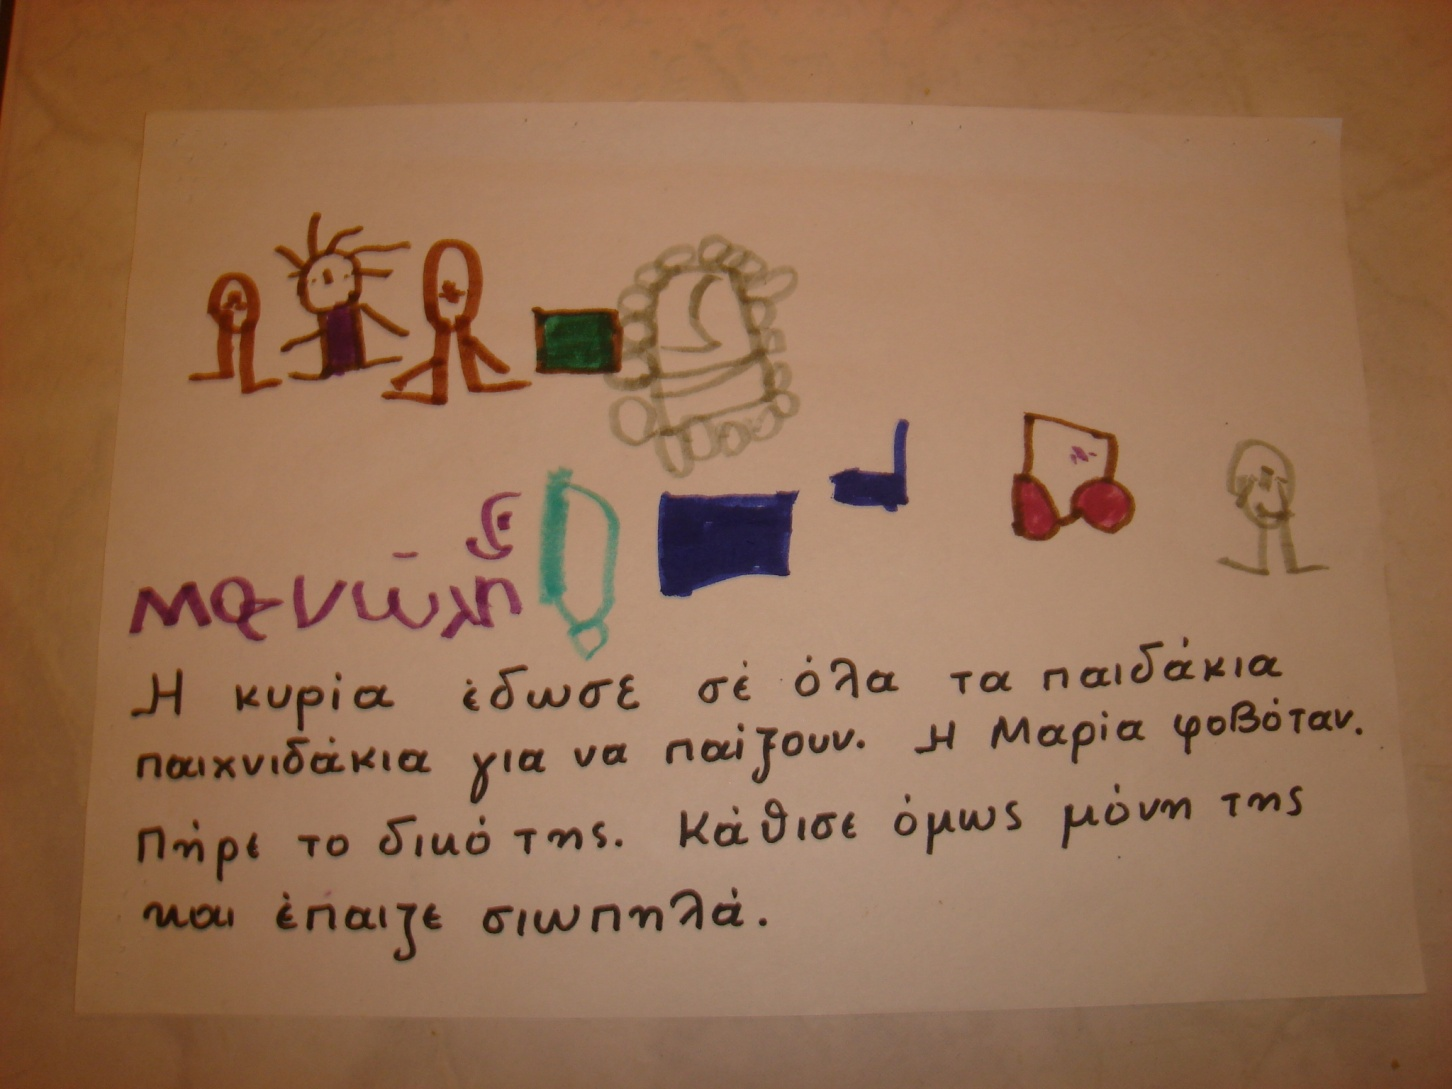 Μανώλης
Η κυρία έδωσε σέ όλα τα παιδάκια
παιχνιδάκια για να παίζουν. Η Μαρία φοβόταν.
Πήρε το δικό της. Κάθισε όμως μόνη της
και έπαιζε σιωπηλά.